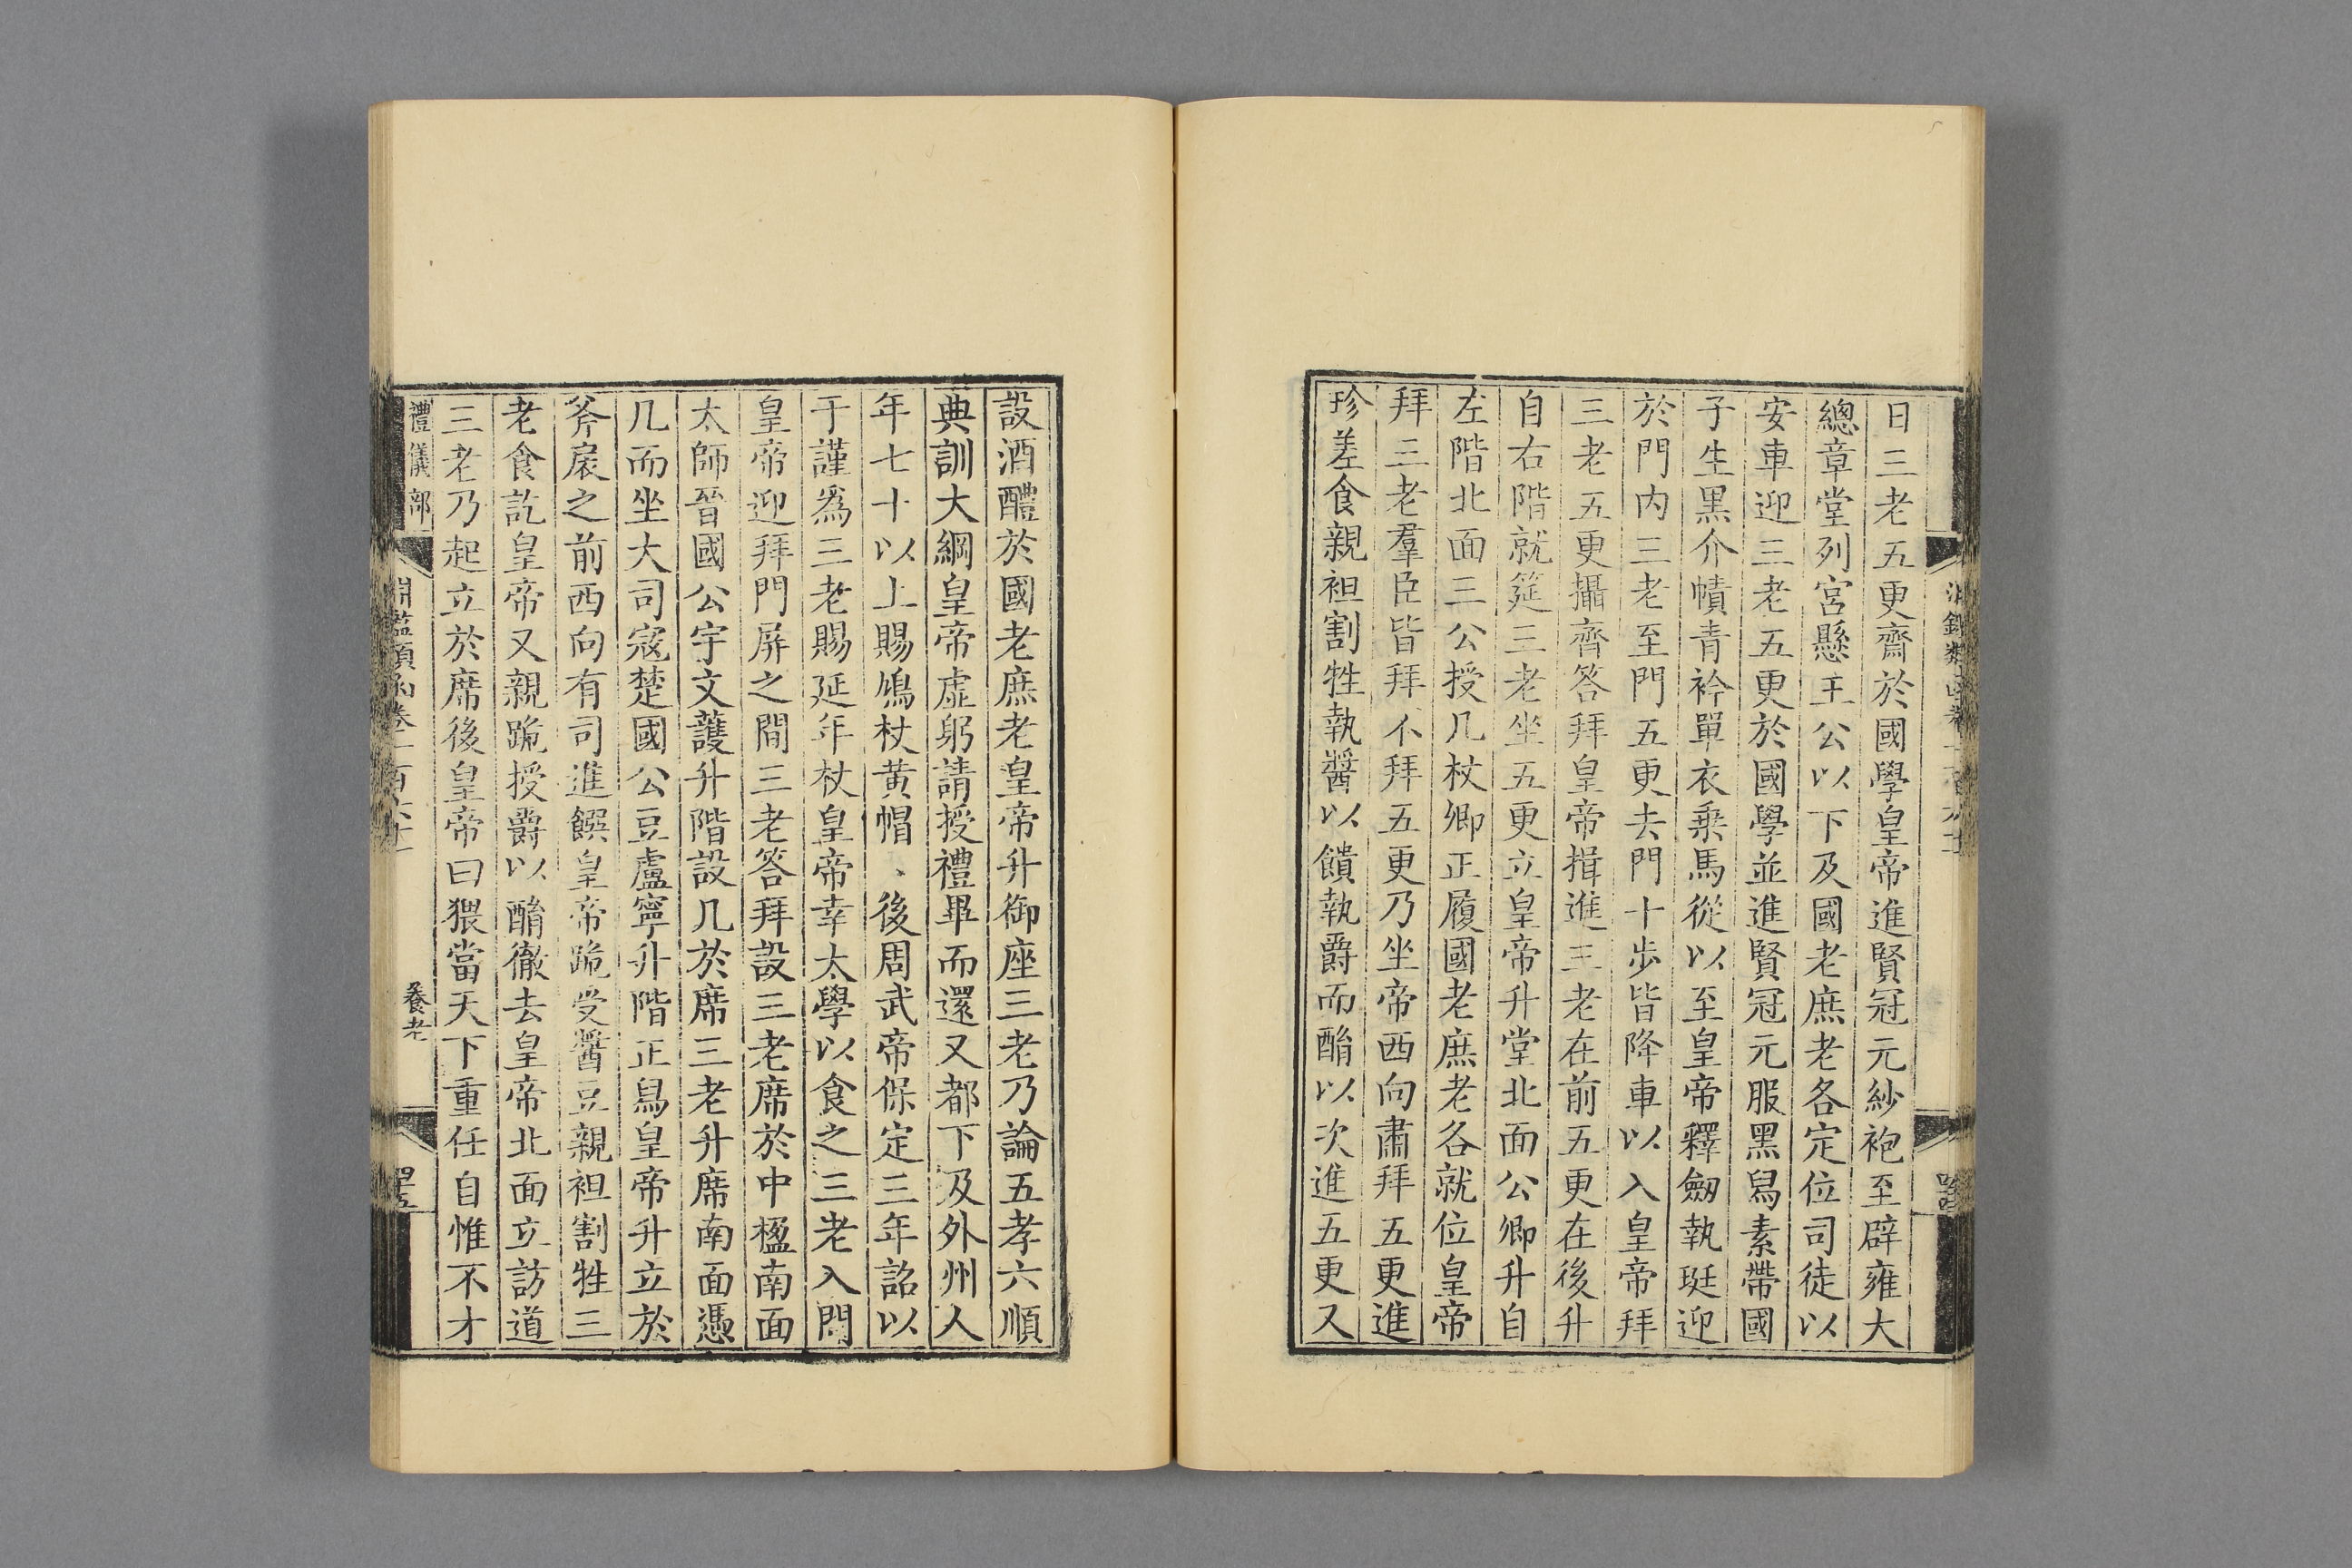 日三老五更齋於國學皇帝進賢冠元紗袍至辟雍大
總章堂列宮懸王公以下及國老庶老各定位司徒以
安車迎三老五更於國學並進賢冠元服黑舄素帶國
子生黑介幘青衿單衣乗馬從以至皇帝釋劒執珽迎
於門内三老至門五更去門十步皆降車以入皇帝拜
三老五更攝齊答拜皇帝揖進三老在前五更在後升
自右階就筵三老坐五更立皇帝升堂北面公卿升自
左階北面三公授几杖卿正履國老庶老各就位皇帝
拜三老羣臣皆拜不拜五更乃坐帝西向肅拜五更進
珍羞食親袒割牲執醬以饋執爵而酳以次進五更又
設酒醴於國老庶老皇帝升御座三老乃論五孝六順
典訓大綱皇帝虛躬請授禮畢而還又都下及外州人
年七十以上賜鳩杖黄帽、後周武帝保定三年詔以
于謹爲三老賜延年杖皇帝幸太學以食之三老入門
皇帝迎拜門屏之間三老答拜設三老席於中楹南面
太師晉國公宇文護升階設几於席三老升席南面憑
几而坐大司寇楚國公豆盧寧升階正舄皇帝升立於
斧扆之前西向有司進饌皇帝跪受醬豆親袒割牲三
老食訖皇帝又親跪授爵以酳徹去皇帝北面立訪道
三老乃起立於席後皇帝曰猥當天下重任自惟不才
禮儀部
淵鑑類函卷一百六十
養老